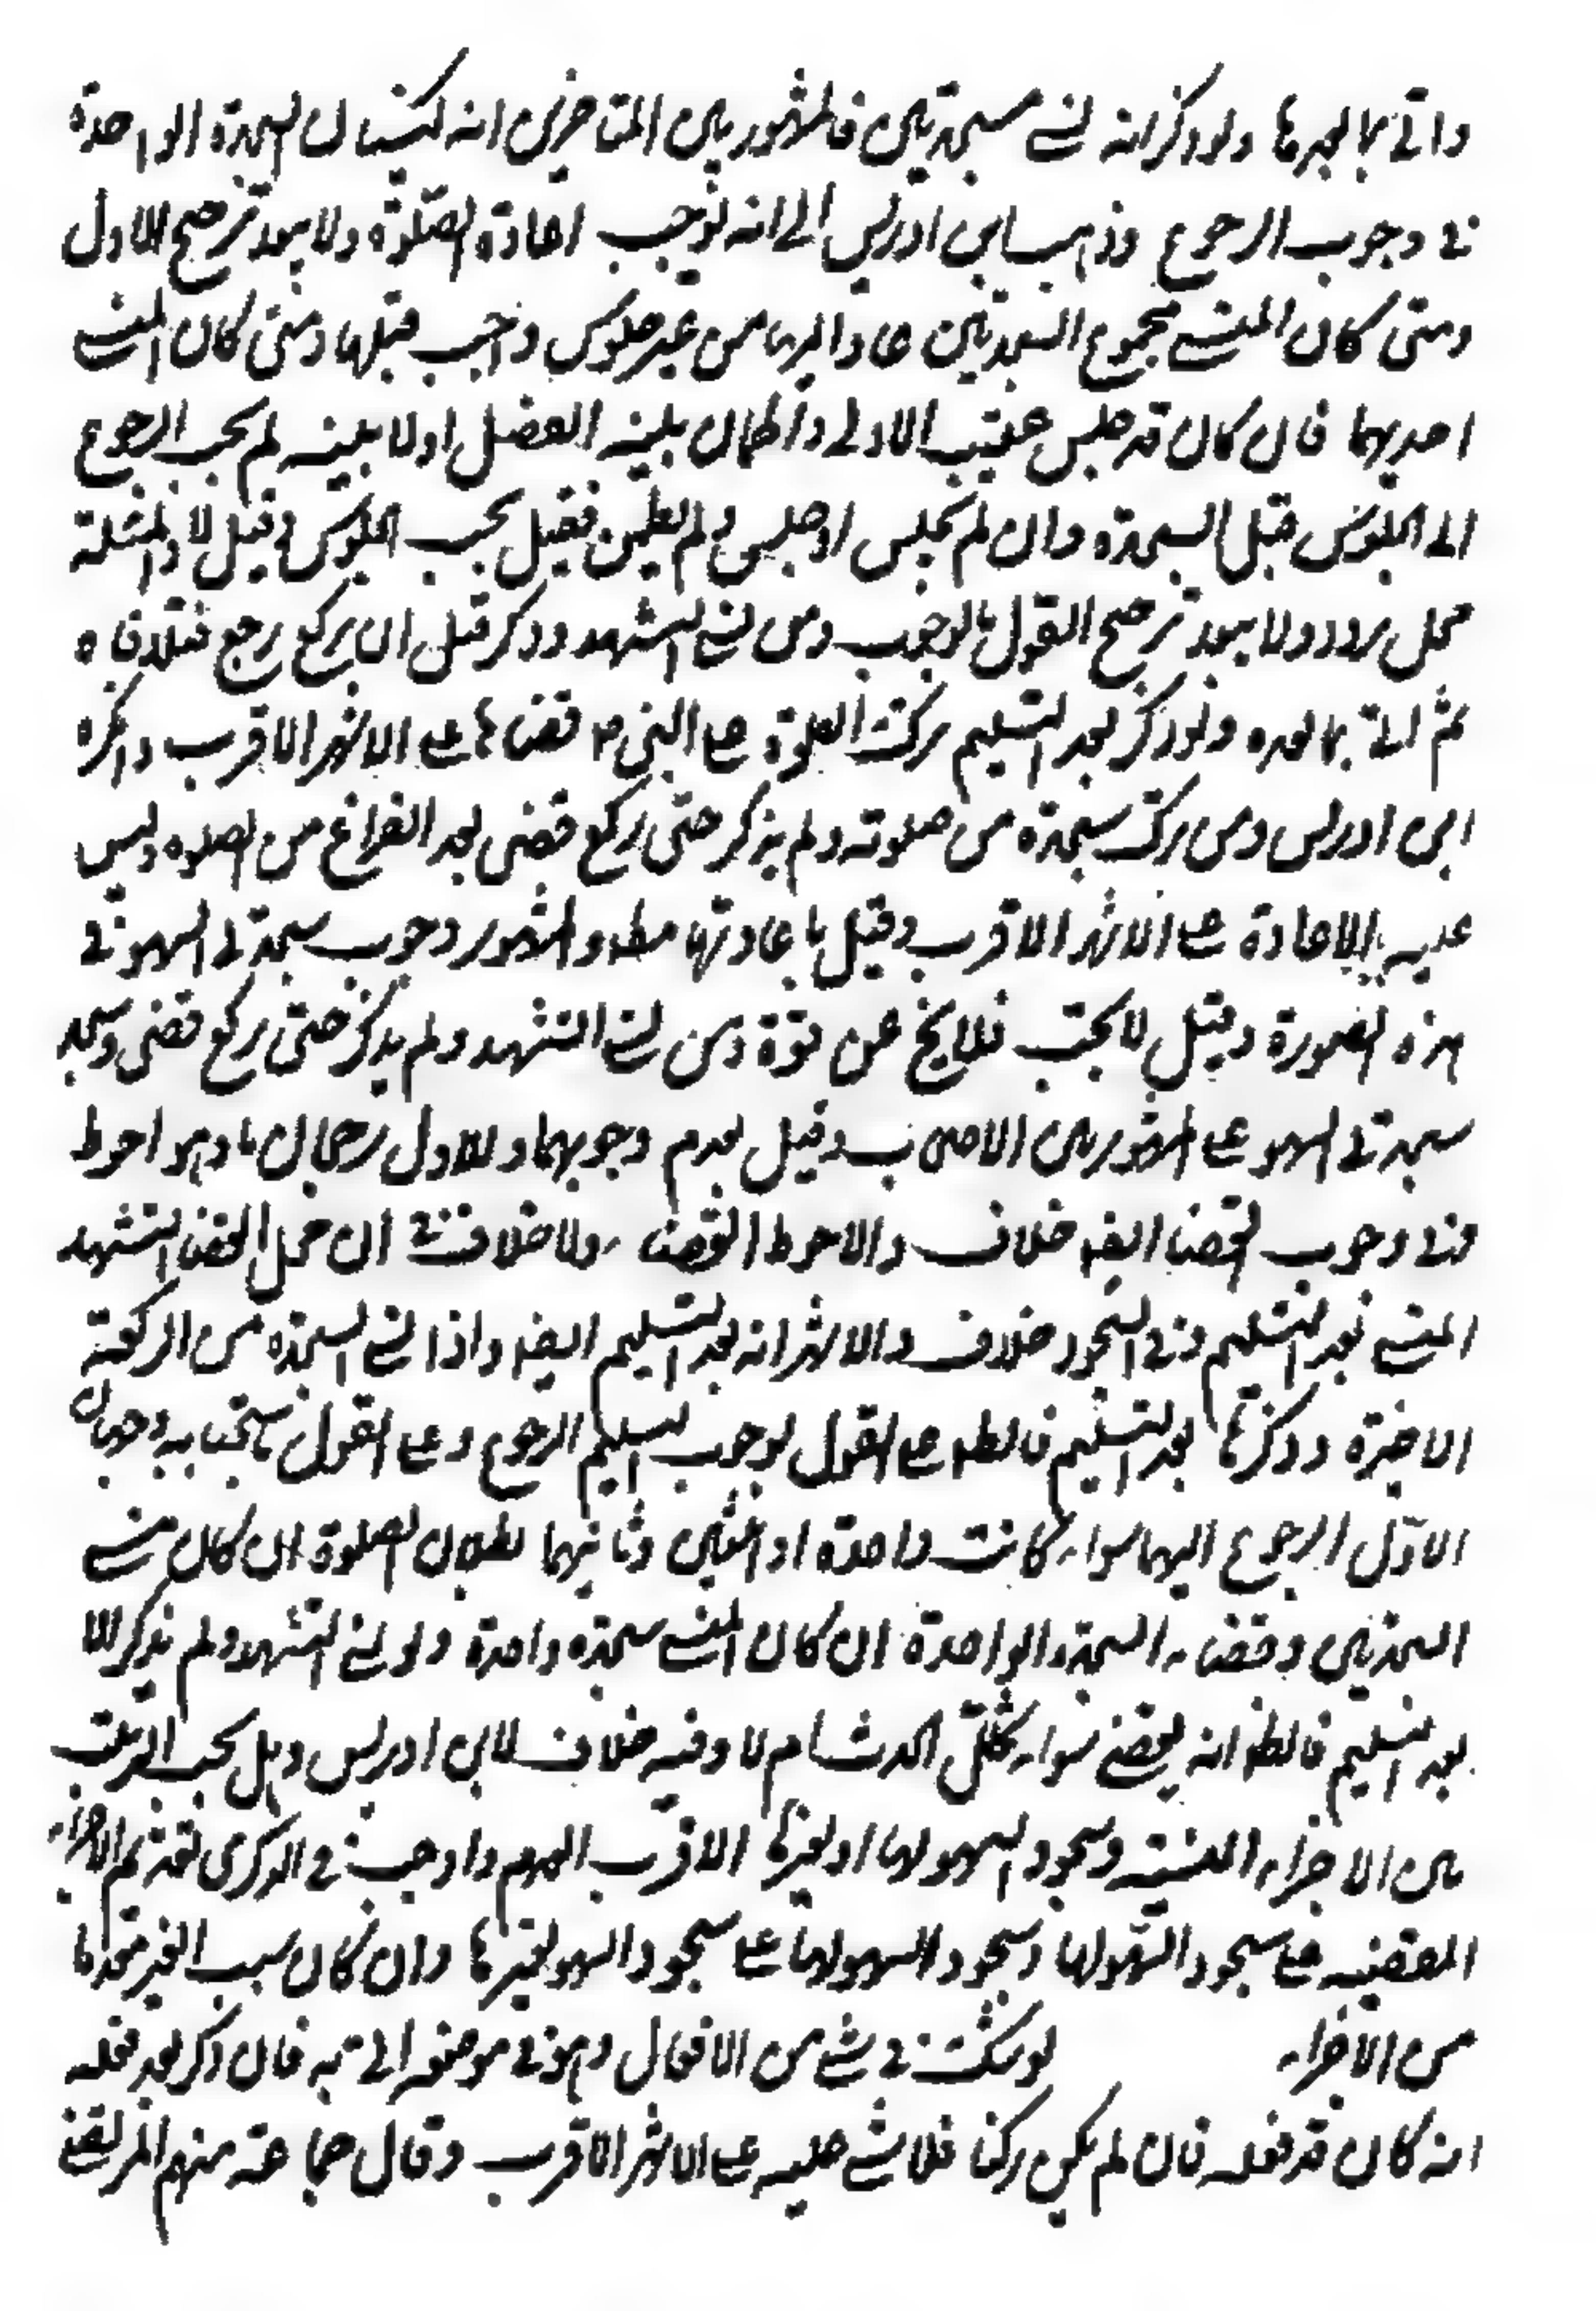 واتى بما بعدها ولو ذكر انه نسى سجدتين فالمشهور بين المتاخرين انه كنسيان السجدة الواحدة
فى وجوب الرجوع وذهب ابن ادريس الى انه يوجب اعادة الصلوة ولا يبعد ترجيح الاول
ومتى كان المنسى مجموع السجدتين عاد اليهما من غير جلوس واجب قبلهما ومتى كان المنسى
احديهما فان كان قد جلس عقيب الاولى واطمان بنية الفصل اولا بنية لم يجب الرجوع
الى الجلوس قبل السجدة وان لم يجلس او جلس ولم يطمئن فقيل يجب الجلوس وقيل لا والمسئلة
محل تردد ولا يبعد ترجيح القول بالوجوب ومن نسى التشهد وذكر قبل ان يركع رجع فتلافاه
ثم اتى بما بعده ولو ذكر بعد التسليم ترك الصلوة على النبى ص قضاها على الاشهر الاقرب وانكره
ابن ادريس ومن ترك سجدة من صلوته ولم يذكر حتى ركع قضى بعد الفراغ من الصلوه وليس
عليه الاعادة على الاشهر الاقرب وقيل باعادتها مطلقا والمشهور وجوب سجدتى السهو فى
هذه الصورة وقيل لا يجب فلا يخ عن قوة ومن نسى التشهد ولم يذكر حتى ركع قضى وسجد
سجدتى السهو على المشهور بين الاصحاب وقيل بعدم وجوبهما وللاول رجحان ما وهو احوط
وفى وجوب القضا ايضا خلاف والاحوط القضاء ولا خلاف فى ان محل القضا التشهد
المنسى بعد التسليم وفى السجود خلاف والاشهر انه بعد التسليم ايضا واذا نسى السجدة من الركعة
الاخيرة وذكرها بعد التسليم فالظ على القول بوجوب التسليم الرجوع وعلى القول باستحبابه وجهان
الاول الرجوع اليهما سواء كانت واحدة او اثنتين وثانيهما بطلان الصلوة ان كان منسى
السجدتين وقضاء السجدة الواحدة ان كان المنسى سجدة واحدة ولو نسى التشهد ولم يذكر الا
بعد التسليم فالظ انه يقضى سواء تخلل الحدث ام لا وفيه خلاف لابن ادريس وهل يجب الترتيب
بين الاجزاء المنسية وسجود السهو لها او لغيرها الاقرب العدم واوجب فى الذكرى تقديم الاجزاء
المقضيه على سجود السهو لها وسجود السهو لها على سجود السهو لغيرها وان كان سبب الغير متقدما
من الاجزاء لو شك فى شئ من الافعال وهو فى موضعه اتى به فان ذكر بعد فعله
انه كان قد فعله فان لم يكن ركنا فلا شئ عليه على الاشهر الاقرب وقال جماعة منهم المرتضى